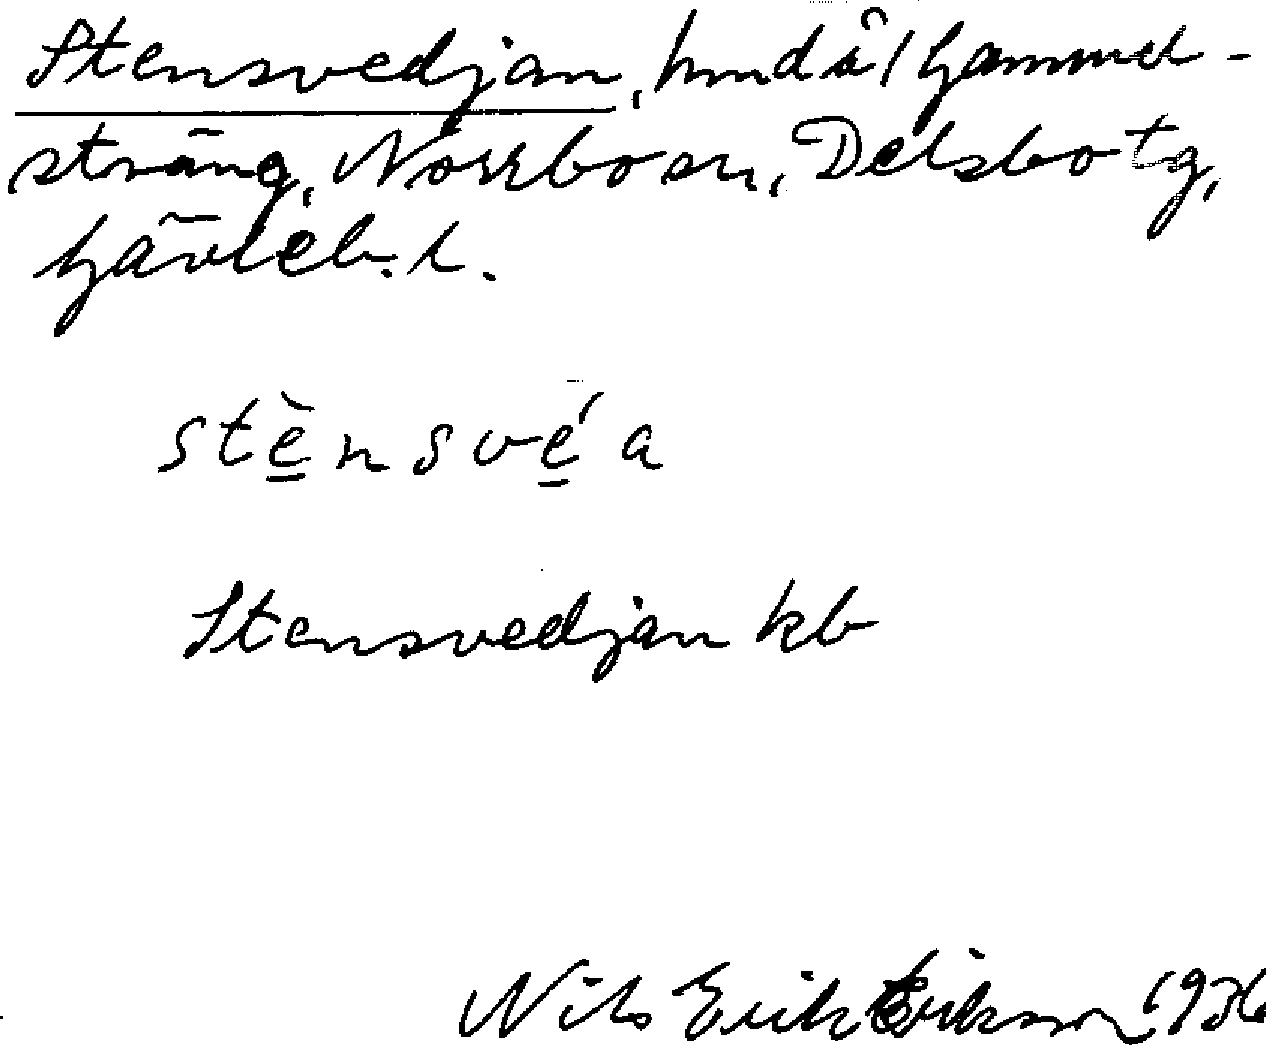 Stensvedjan, hmd å / Gammel-
sträng, Norrbo sn, Delsbo tg,
Gävleb. l.
stè̠nsvé̠a
Stensvedjan kb
Nils Erik Erikson 1936